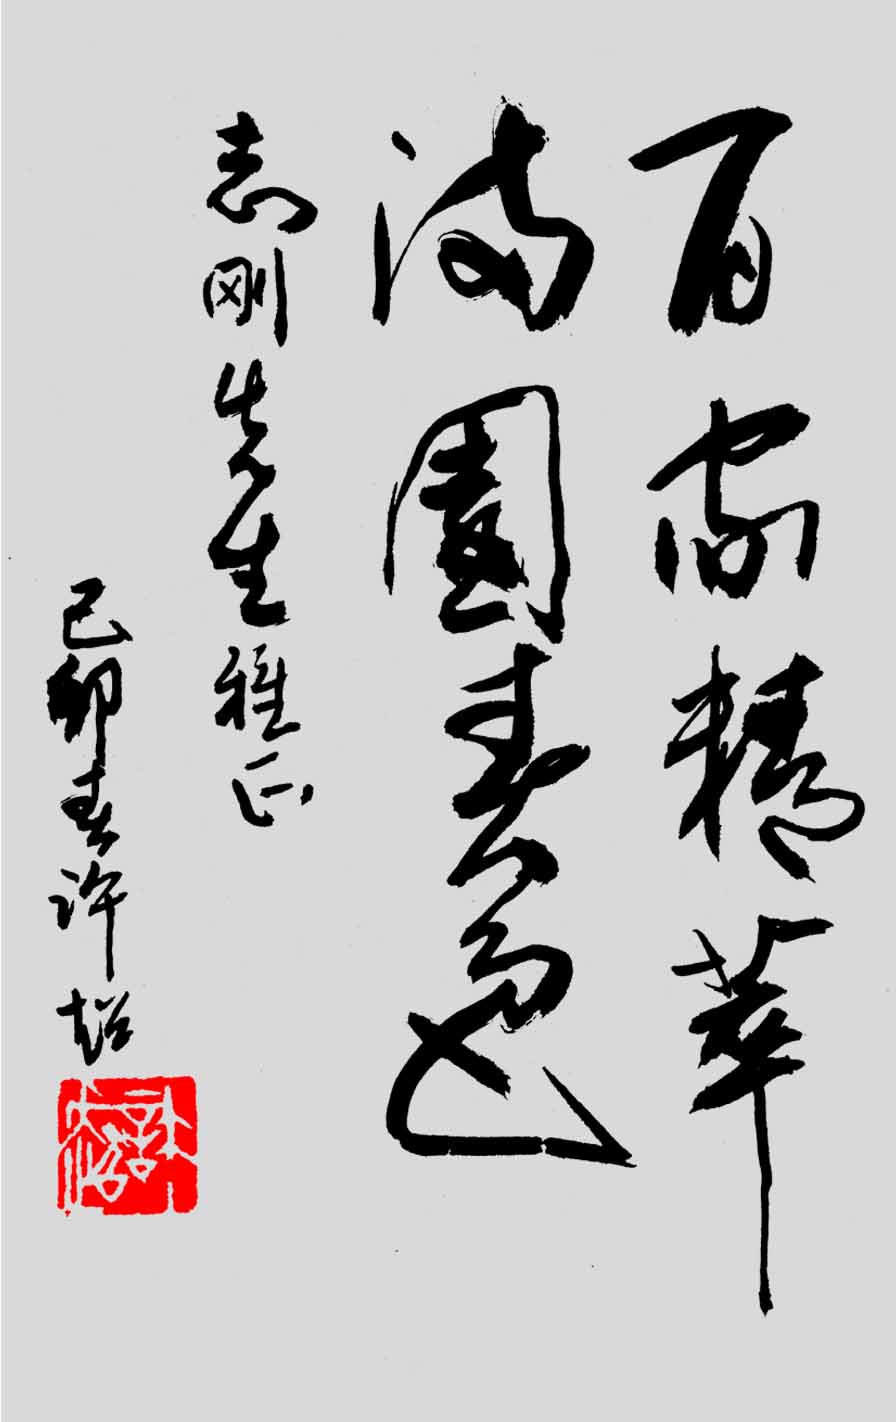 百家精萃
满園春色
志刚先生雅正
己卯春许超